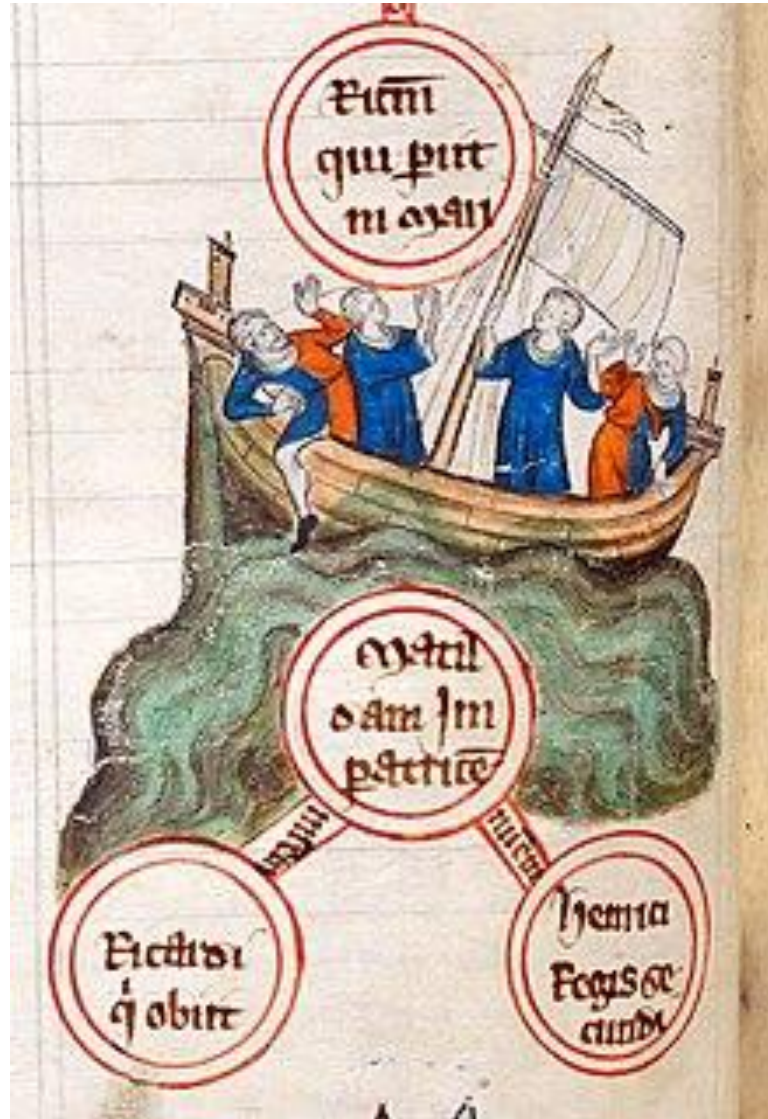 Ricm̄
qui ꝑiit
in mari
Matil
dam Im
patricē
Ricardi
qͥ obiit
henrici
Regis se
cundi